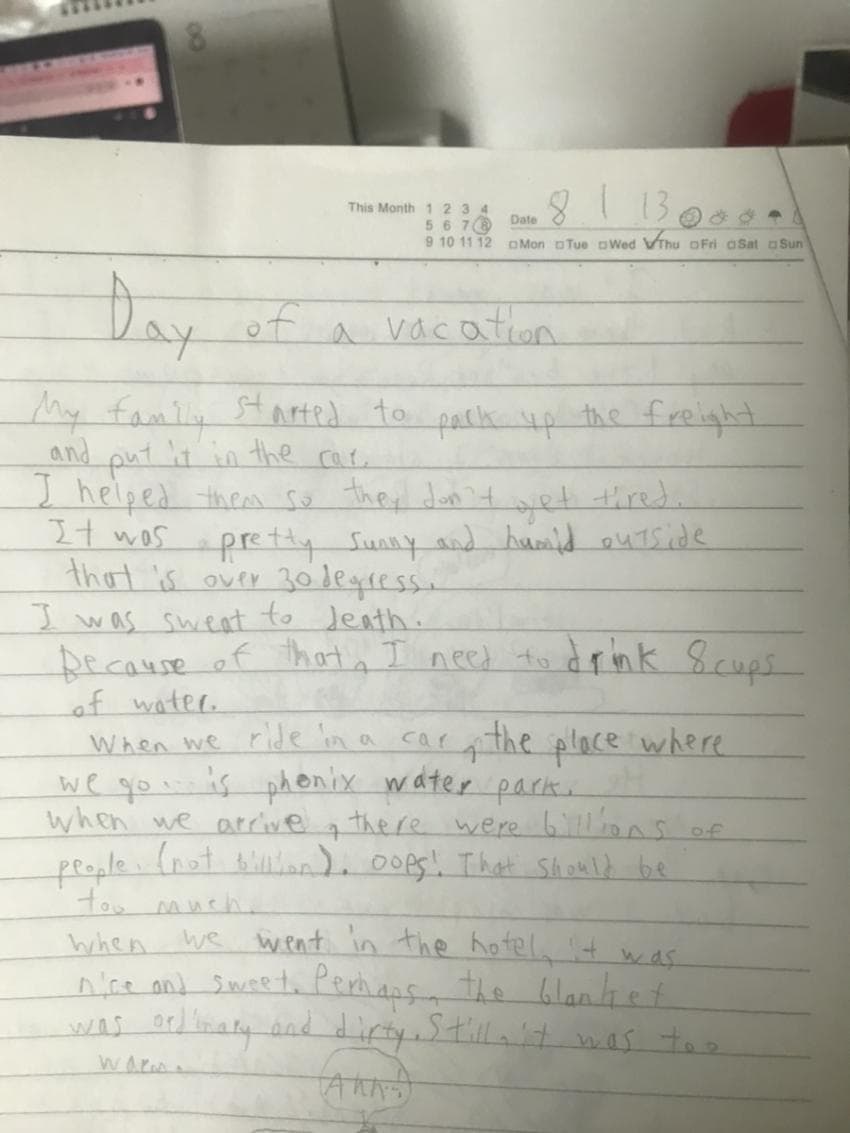 8
This Month 1 2 3 4
5 6 7 8
9 10 11 12
Date 8 / 13
Mon Tue Wed Thu Fri Sat Sun
Day of a vacation
My family started to pack up the freight
and put it in the car.
I helped them so they don't get tired.
It was pretty sunny and humid outside
that is over 30 degress.
I was sweat to death.
Because of that, I need to drink 8 cups
of water.
When we ride in a car, the place where
we go... is phonix water park.
When we arrive, there were billions of
people. (not billion). OOPS! That should be
too much.
When we went in the hotel, it was
nice and sweet. Perhaps, the blanket
was ordinary and dirty. Still, it was too
warm.
Ahh..!